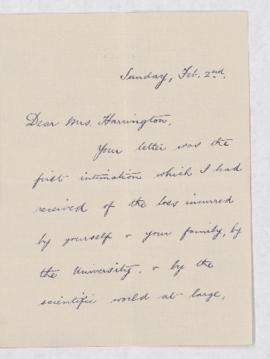 Sunday, Feb. 2nd.
Dear Mrs. Harrington,
Your letter was the
first intimation which I had
received of the loss incurred
by yourself & your family, by
the University, & by the
scientific world at large,